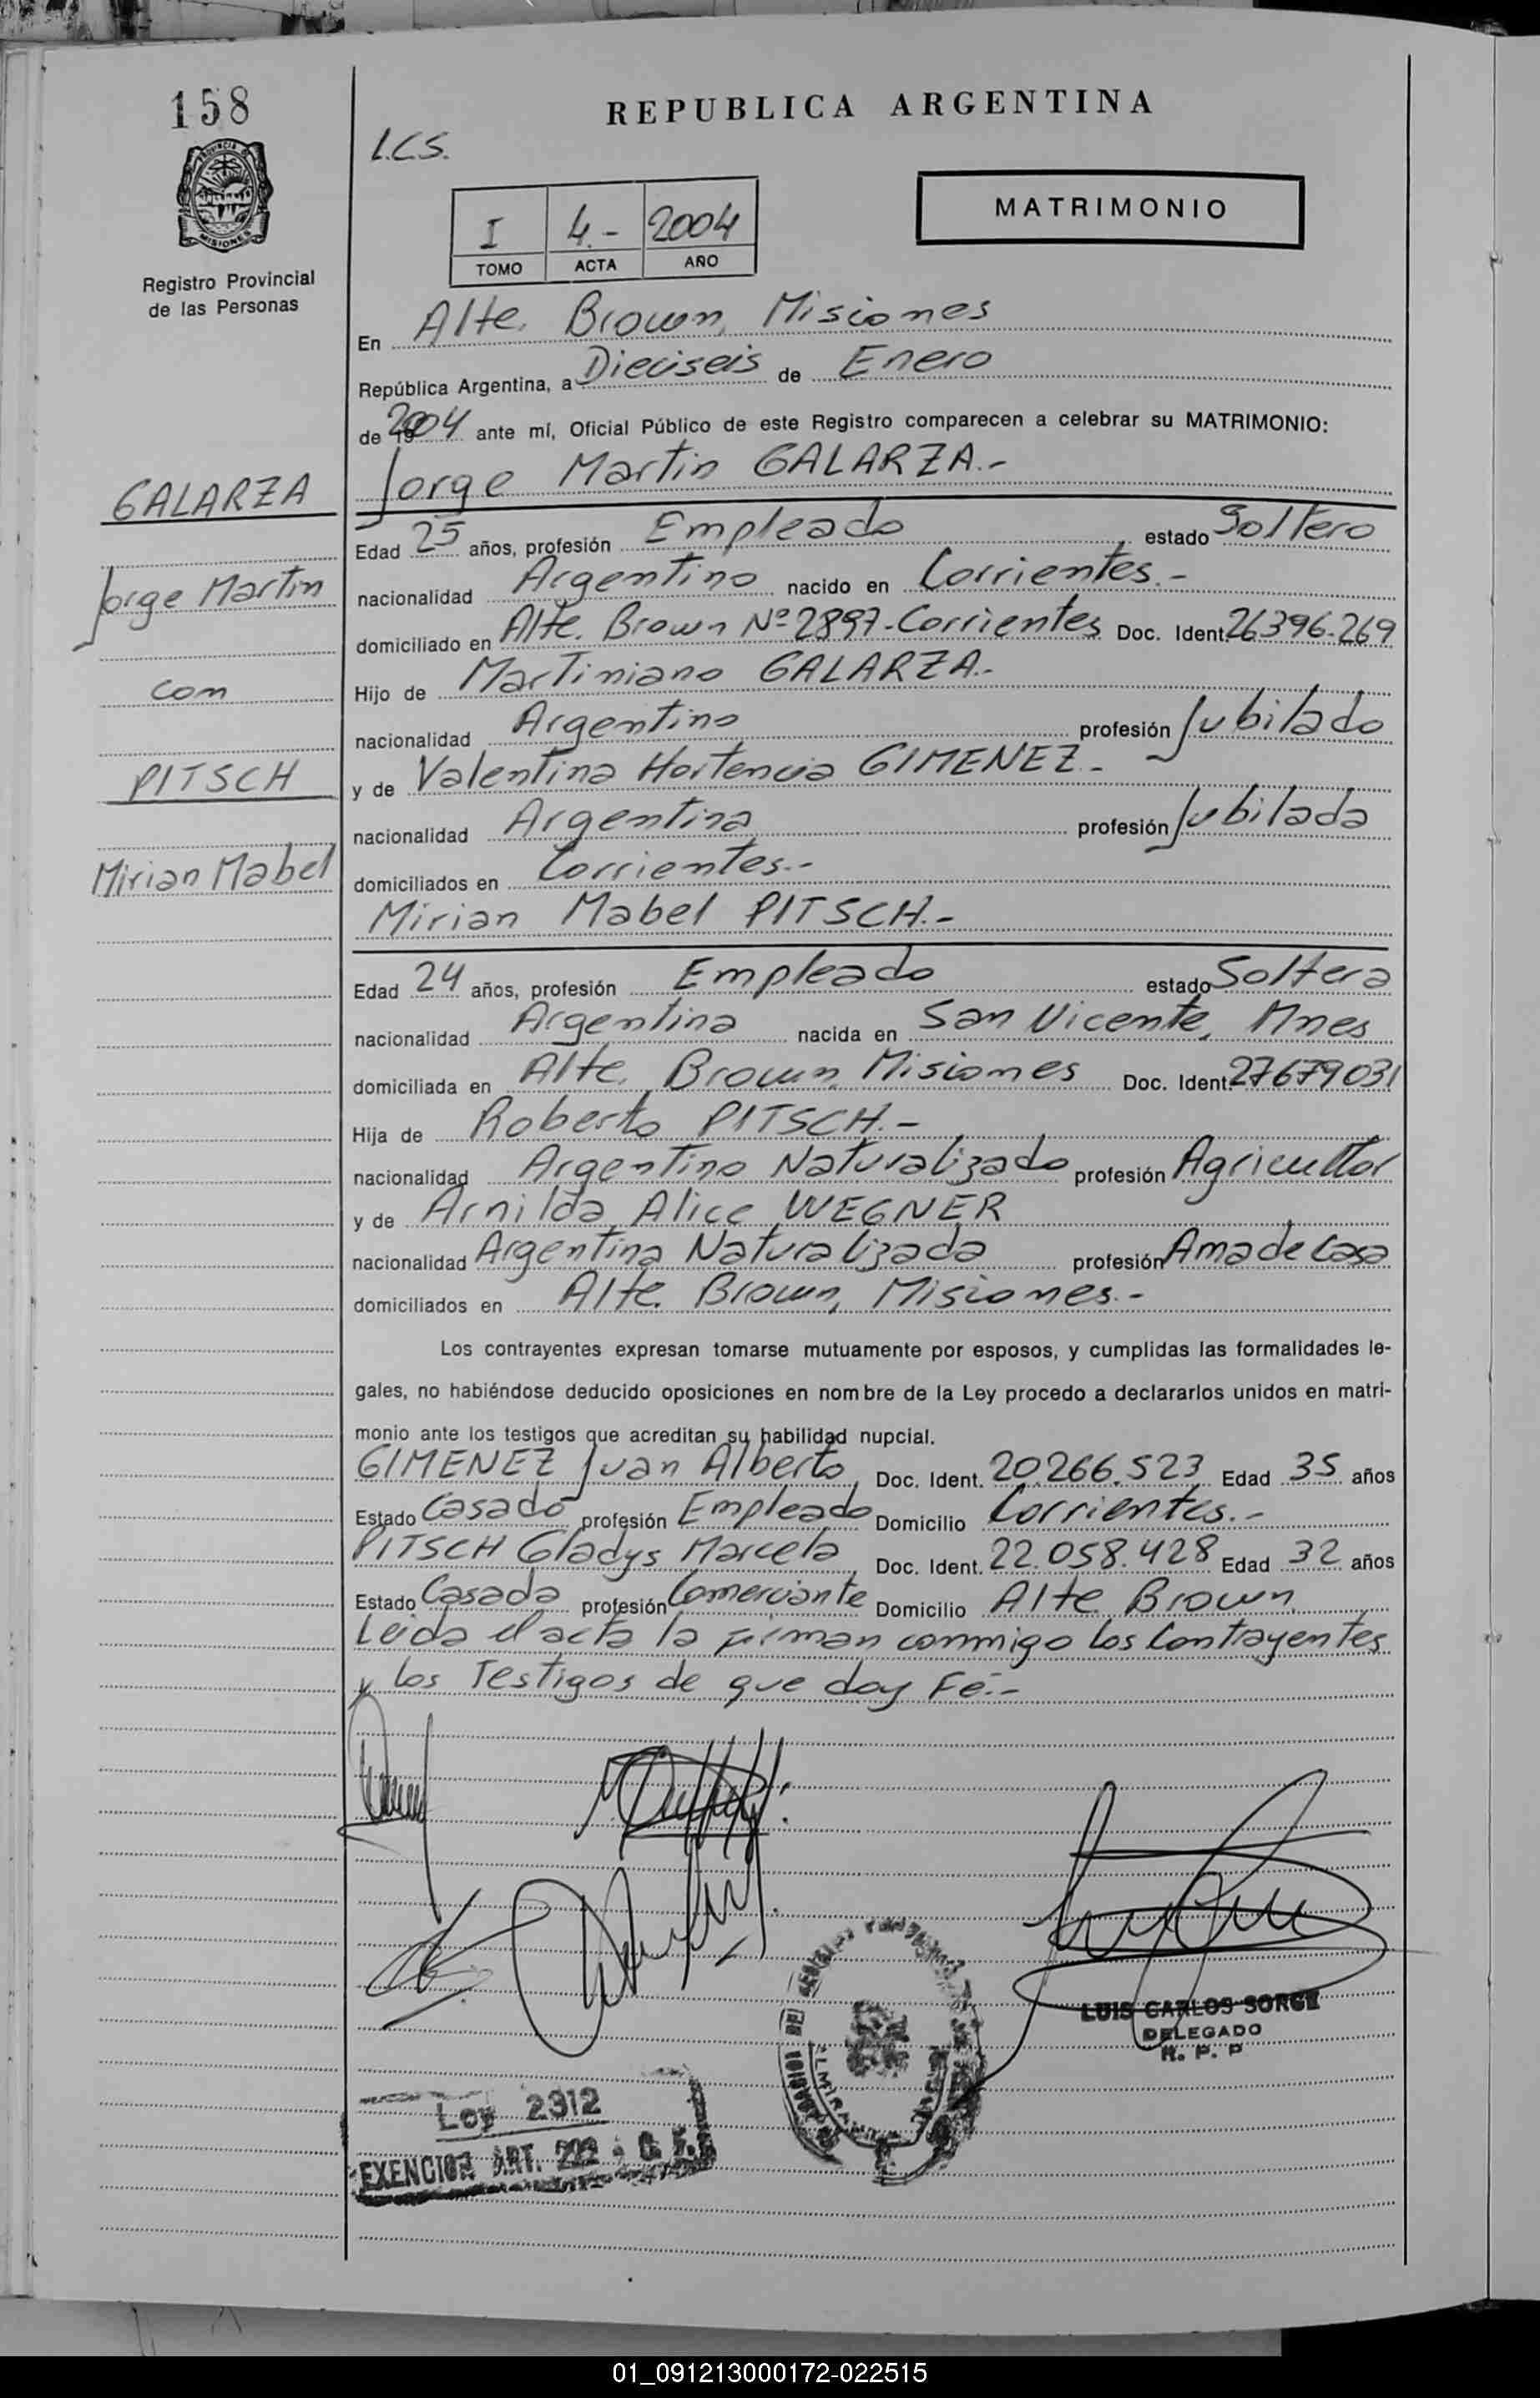 158
REPUBLICA ARGENTINA
L.C.S.
PROVINCIA DE
MISIONES
Registro Provincial
de las Personas
MATRIMONIO
I 4.- 2004
TOMO ACTA AÑO
En Alte. Brown, Misiones
República Argentina, a Dieciseis de Enero
de 2004 ante mí, Oficial Público de este Registro comparecen a celebrar su MATRIMONIO:
Jorge Martin GALARZA.-
GALARZA
Jorge Martin
con
PITSCH
Mirian Mabel
Edad 25 años, profesión Empleado estado Soltero
nacionalidad Argentino nacido en Corrientes.-
domiciliado en Alte. Brown Nº 2897-Corrientes Doc. Ident. 26396.269
Hijo de Martiniano GALARZA.-
nacionalidad Argentino profesión Jubilado
y de Valentina Hortencia GIMENEZ.-
nacionalidad Argentina profesión Jubilada
domiciliados en Corrientes.-
Mirian Mabel PITSCH.-
Edad 24 años, profesión Empleado estado Soltera
nacionalidad Argentina nacida en San Vicente, Mnes
domiciliada en Alte. Brown, Misiones Doc. Ident. 27679031
Hija de Roberto PITSCH.-
nacionalidad Argentino Naturalizado profesión Agricultor
y de Arnilda Alice WEGNER
nacionalidad Argentina Naturalizada profesión Ama de Casa
domiciliados en Alte. Brown, Misiones.-
Los contrayentes expresan tomarse mutuamente por esposos, y cumplidas las formalidades le-
gales, no habiéndose deducido oposiciones en nombre de la Ley procedo a declararlos unidos en matri-
monio ante los testigos que acreditan su habilidad nupcial.
GIMENEZ Juan Alberto Doc. Ident. 20.266.523 Edad 35 años
Estado Casado profesión Empleado Domicilio Corrientes.-
PITSCH Gladys Marcela Doc. Ident. 22.058.428 Edad 32 años
Estado Casada profesión Comerciante Domicilio Alte Brown
Leida el acta la firman conmigo los Contrayentes
y los Testigos de que doy Fé.-
LUIS CARLOS SORGE
DELEGADO
R. P. P
Ley 2312
EXENCION ART. 222
01_091213000172-022515